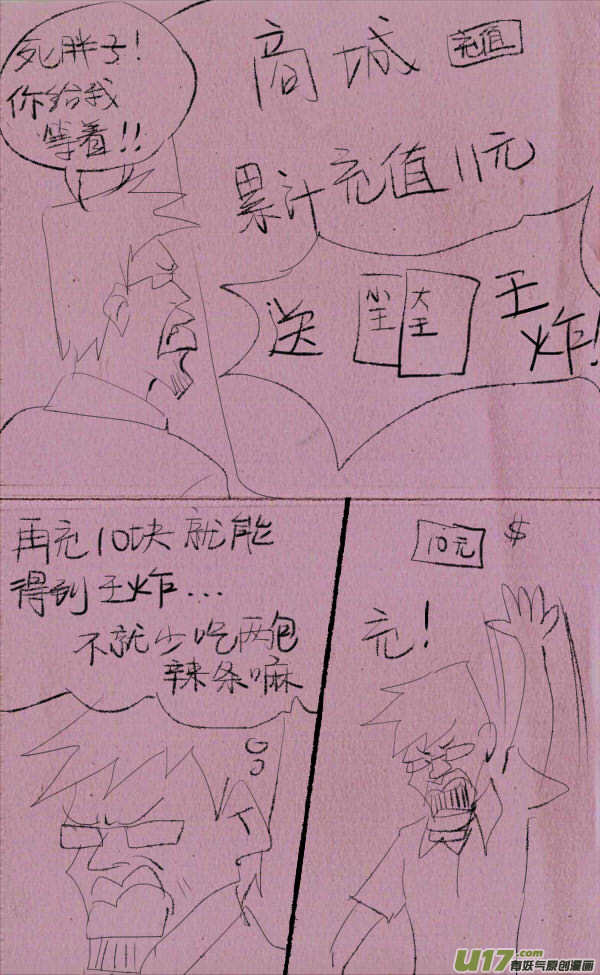 死胖子!
你给我
等着!!
商城
充值
累计充值11元
送
小王
大王
王炸!
再充10块就能
得到王炸...
不就少吃两包
辣条嘛
10元
$
充!
U17.com
有妖气原创漫画